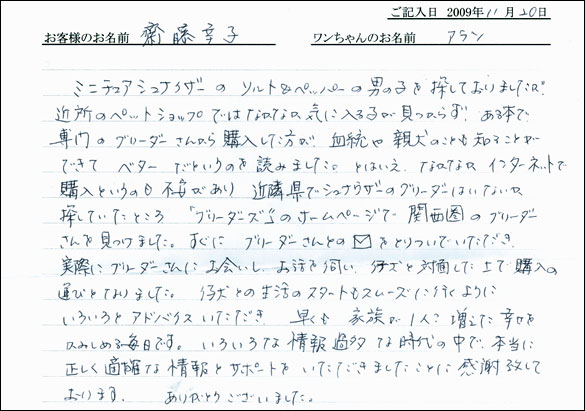 ご記入日 2009年11月20日
お客様のお名前 齋藤幸子 ワンちゃんのお名前 アラン
ミニチュアシュナウザーの ソルト&ペッパーの男の子を探しておりましたが
近所のペットショップではなかなか気に入る子が見つからず、ある本で
専門のブリーダーさんから購入した方が、血統や親犬のことも知ることが
できて ベターだというのを読みました。とはいえ、なかなかインターネットで
購入というのも不安があり 近隣県でシュナウザーのブリーダーはいないか
探していたところ 「ブリーダーズ」のホームページで 関西圏のブリーダー
さんを見つけました。すぐに ブリーダーさんとの✉をとりついでいただき、
実際にブリーダーさんにお会いし、お話を伺い、仔犬と対面した上で購入の
運びとなりました。 仔犬との生活のスタートもスムーズに行くように
いろいろとアドバイスいただき 早くも 家族が1人?増えた幸せを
かみしめる毎日です。いろいろな情報過多な時代の中で、本当に
正しく適確な情報とサポートをいただきましたことに感謝致して
おります。 ありがとうございました。